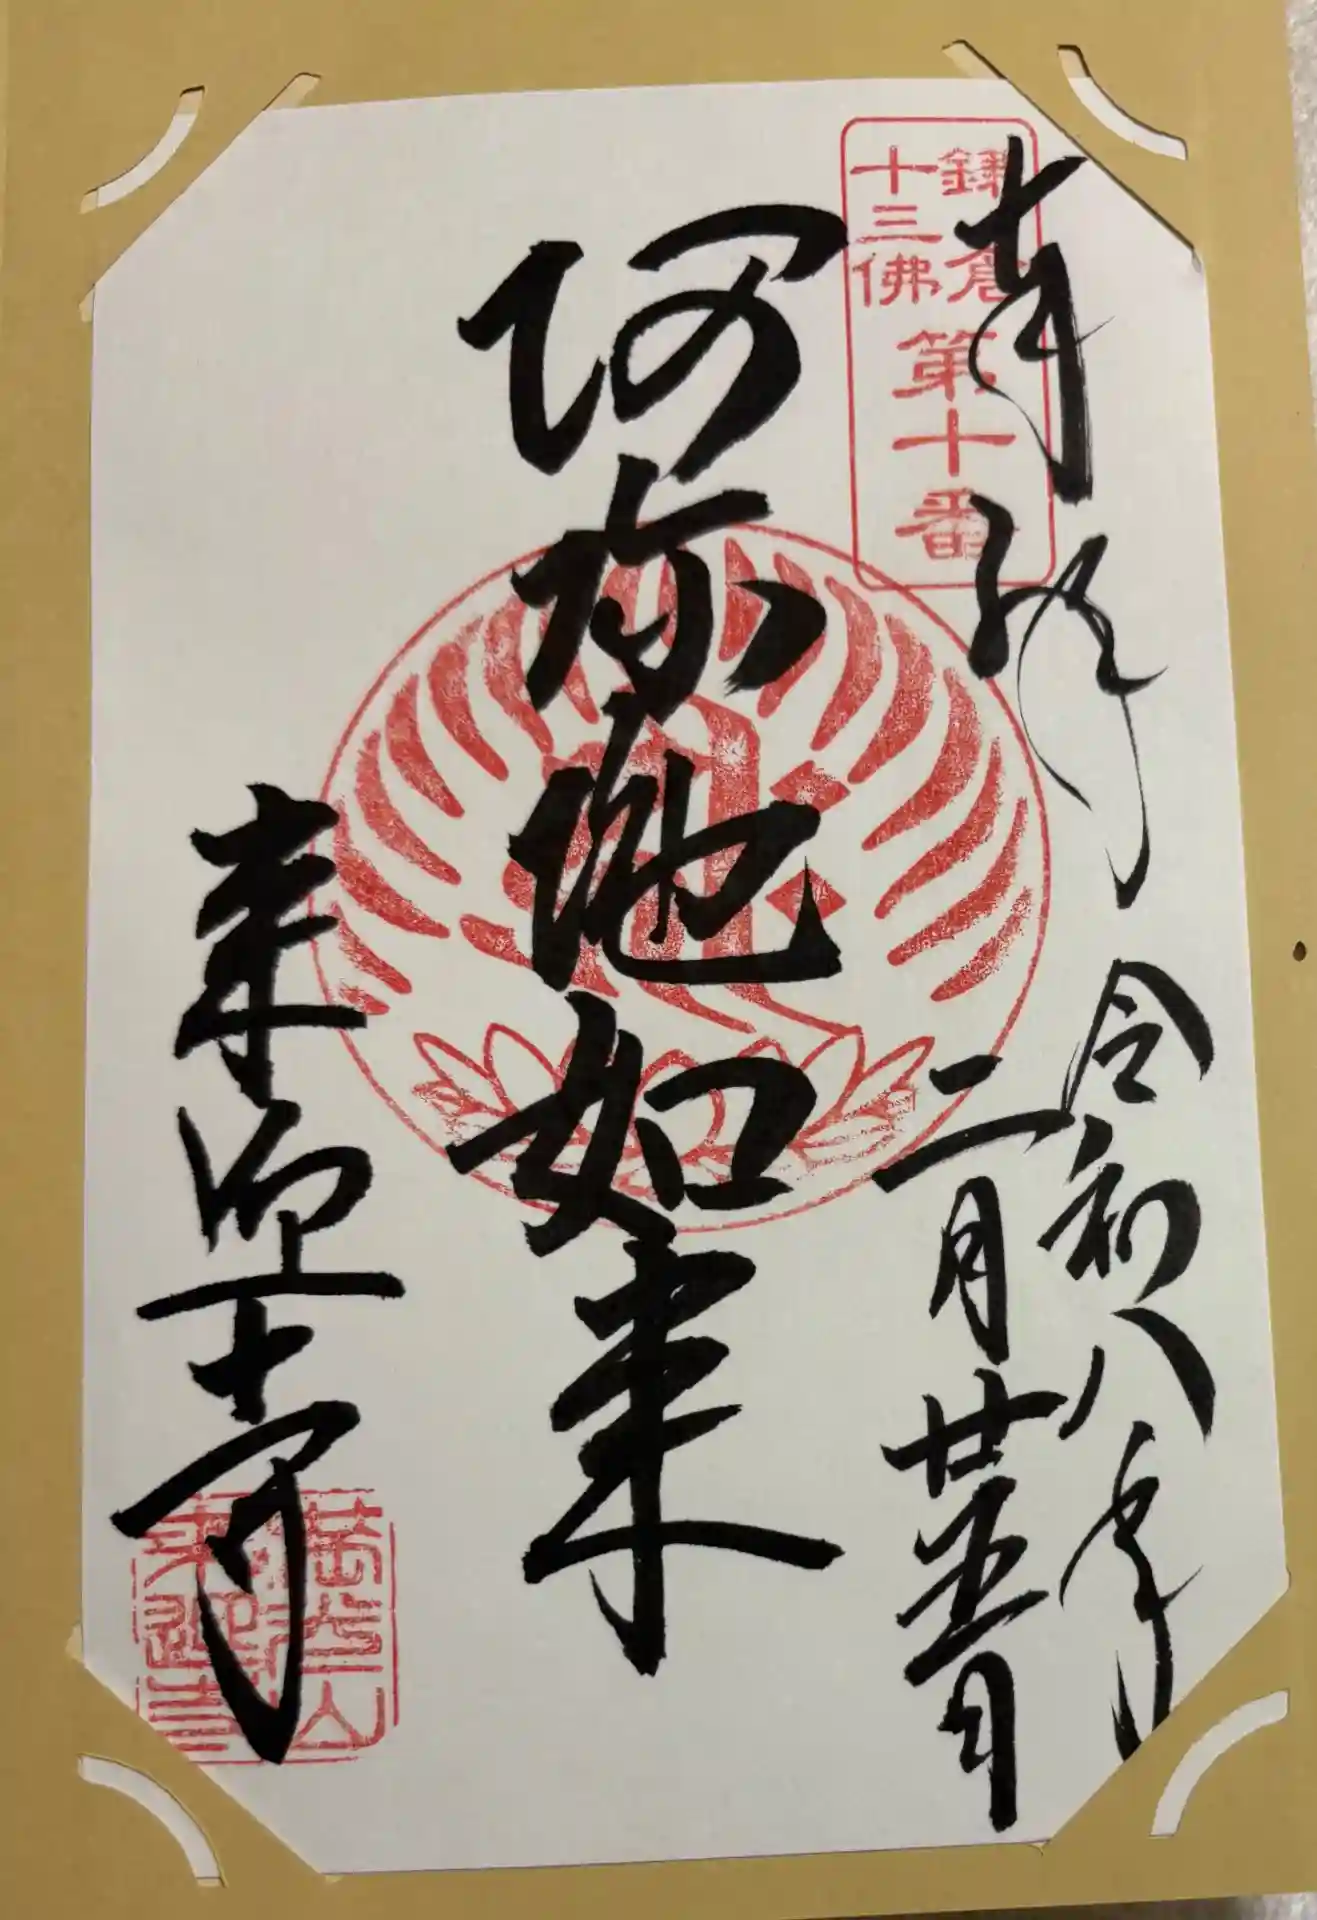 奉拝
鎌倉
十三佛
第十番
令和八年
二月廿五日
阿弥陀如来
来迎寺
来迎寺